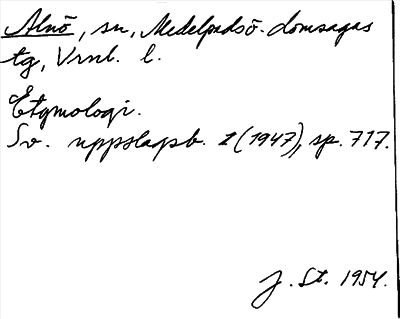 Alnö, sn, Medelpadsö. domsagas
tg, Vrnl. l.
Etymologi.
Sv. uppslagsb. 1 (1947), sp. 717.
J. St. 1954.